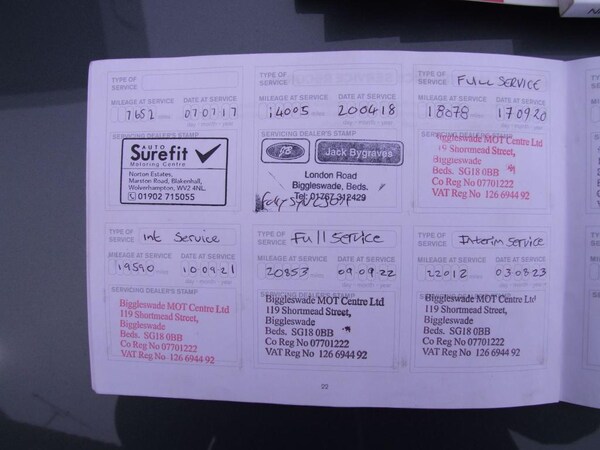 TYPE OF
SERVICE
MILEAGE AT SERVICE DATE AT SERVICE
7652 miles 07 07 17
day - month - year
SERVICING DEALER'S STAMP
AUTO
Surefit
Motoring Centre
Norton Estates,
Marston Road, Blakenhall,
Wolverhampton, WV2 4NL.
01902 715055
TYPE OF
SERVICE
MILEAGE AT SERVICE DATE AT SERVICE
14005 miles 20 04 18
day - month - year
SERVICING DEALER'S STAMP
JB Jack Bygraves
London Road
Biggleswade, Beds.
Tel: 01767 312429
TYPE OF
SERVICE Full SERVICE
MILEAGE AT SERVICE DATE AT SERVICE
18078 miles 17 09 20
day - month - year
SERVICING DEALER'S STAMP
Biggleswade MOT Centre Ltd
119 Shortmead Street,
Biggleswade
Beds. SG18 0BB
Co Reg No 07701222
VAT Reg No 126 6944 92
TYPE OF
SERVICE Int Service
MILEAGE AT SERVICE DATE AT SERVICE
19590 miles 10 09 21
day - month - year
SERVICING DEALER'S STAMP
Biggleswade MOT Centre Ltd
119 Shortmead Street,
Biggleswade
Beds. SG18 0BB
Co Reg No 07701222
VAT Reg No 126 6944 92
TYPE OF
SERVICE Full Service
MILEAGE AT SERVICE DATE AT SERVICE
20853 miles 09 09 22
day - month - year
SERVICING DEALER'S STAMP
Biggleswade MOT Centre Ltd
119 Shortmead Street,
Biggleswade
Beds. SG18 0BB
Co Reg No 07701222
VAT Reg No 126 6944 92
TYPE OF
SERVICE Interim Service
MILEAGE AT SERVICE DATE AT SERVICE
22012 miles 03 08 23
day - month - year
SERVICING DEALER'S STAMP
Biggleswade MOT Centre Ltd
119 Shortmead Street,
Biggleswade
Beds. SG18 0BB
Co Reg No 07701222
VAT Reg No 126 6944 92
22